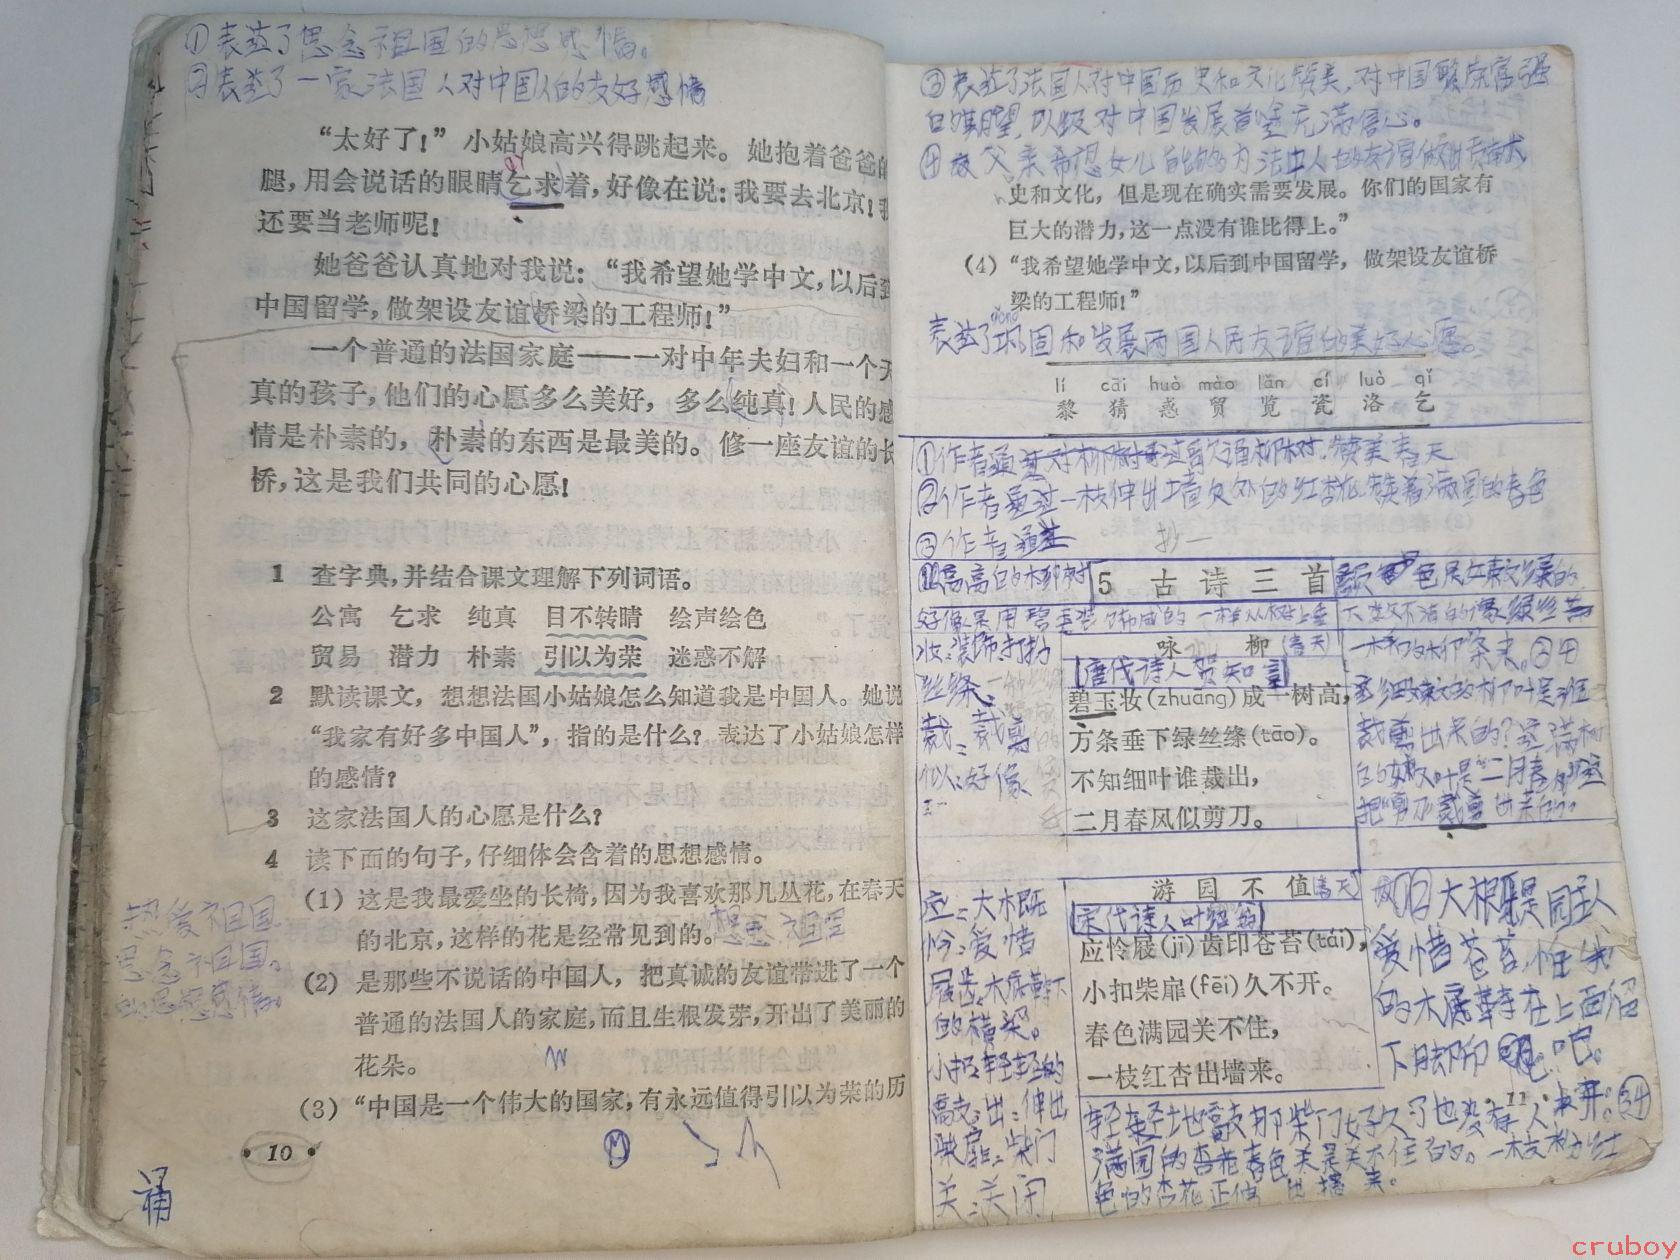 ①表达了思念祖国的思想感情。
②表达了一家法国人对中国人的友好感情
“太好了！”小姑娘高兴得跳起来。她抱着爸爸的
腿，用会说话的眼睛乞求着，好像在说：我要去北京！我
还要当老师呢！
她爸爸认真地对我说：“我希望她学中文，以后到
中国留学，做架设友谊桥梁的工程师！”
一个普通的法国家庭——一对中年夫妇和一个天
真的孩子，他们的心愿多么美好，多么纯真！人民的感
情是朴素的，朴素的东西是最美的。修一座友谊的长
桥，这是我们共同的心愿！
1 查字典，并结合课文理解下列词语。
公寓 乞求 纯真 目不转睛 绘声绘色
贸易 潜力 朴素 引以为荣 迷惑不解
2 默读课文，想想法国小姑娘怎么知道我是中国人。她说
“我家有好多中国人”，指的是什么？表达了小姑娘怎样
的感情？
3 这家法国人的心愿是什么？
4 读下面的句子，仔细体会含着的思想感情。
(1) 这是我最爱坐的长椅，因为我喜欢那几丛花，在春天
的北京，这样的花是经常见到的。
热爱祖国
思念祖国。
的思想感情。
(2) 是那些不说话的中国人，把真诚的友谊带进了一个
普通的法国人的家庭，而且生根发芽，开出了美丽的
花朵。
(3) “中国是一个伟大的国家，有永远值得引以为荣的历
10
诵
③表达了法国人对中国历史和文化赞美，对中国繁荣富强
的期望，以及对中国发展前途充满信心。
史和文化，但是现在确实需要发展。你们的国家有
巨大的潜力，这一点没有谁比得上。”
(4) “我希望她学中文，以后到中国留学，做架设友谊桥
梁的工程师！”
表达了巩固和发展两国人民友谊的美好心愿。
lí cāi huò mào lǎn cí luò qǐ
黎 猜 惑 贸 览 瓷 洛 乞
②作者通过一枝伸出墙外的红杏花赞美满园的春色
③作者通过
抄一
高高的柳树
5 古诗三首
咏柳
唐代诗人贺知章
碧玉妆(zhuāng)成一树高，
万条垂下绿丝绦(tāo)。
不知细叶谁裁出，
二月春风似剪刀。
妆：装饰，打扮
丝绦：
裁：裁剪
似：好像
裁剪出来的？这满树
游园不值
宋代诗人叶绍翁
应怜屐(jī)齿印苍苔(tái)，
小扣柴扉(fēi)久不开。
春色满园关不住，
一枝红杏出墙来。
应：大概
怜：爱惜
屐齿：木底鞋下
的横梁。
小扣：轻轻的
敲；出：伸出
柴扉：柴门
关：关闭
大概是园主人
爱惜苍苔，怕我
的木底鞋在上面留
下脚印吧。
11
轻轻地敲那柴门好久了也没有人来开。
满园的春色关是关不住的。一枝粉红
色的杏花正伸出墙来。
cruboy